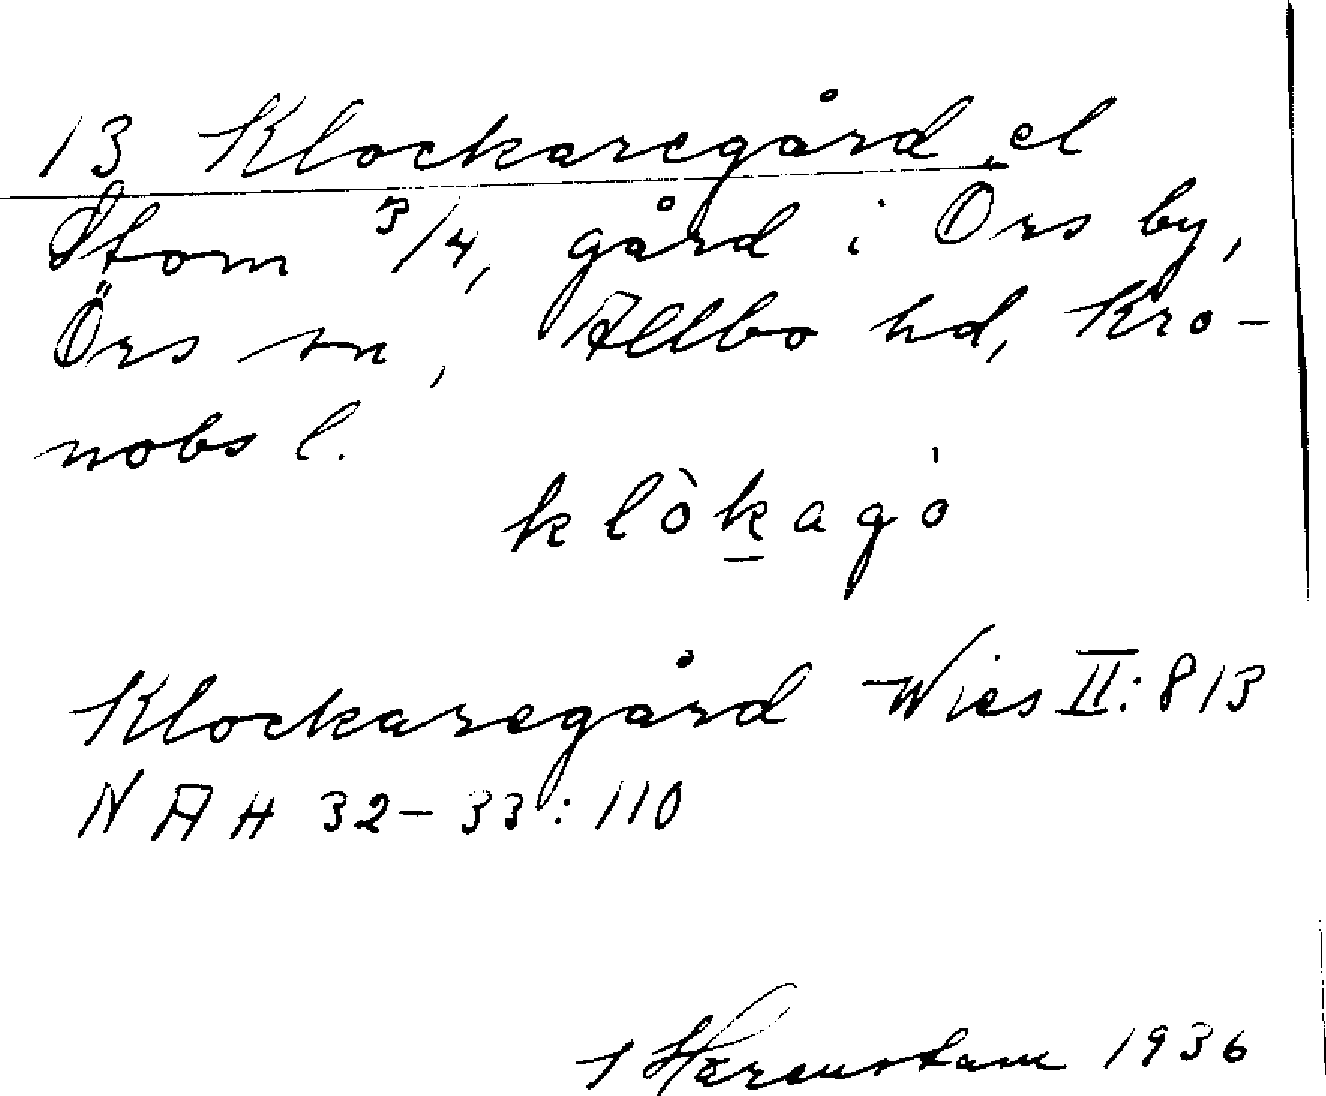 13 Klockaregård el
Stom 3/4, gård i Örs by,
Örs sn, Allbo hd, Kro-
nobs l.
klòkagó
Klockaregård Wies II:813
NAH 32-33:110
Härenstam 1936